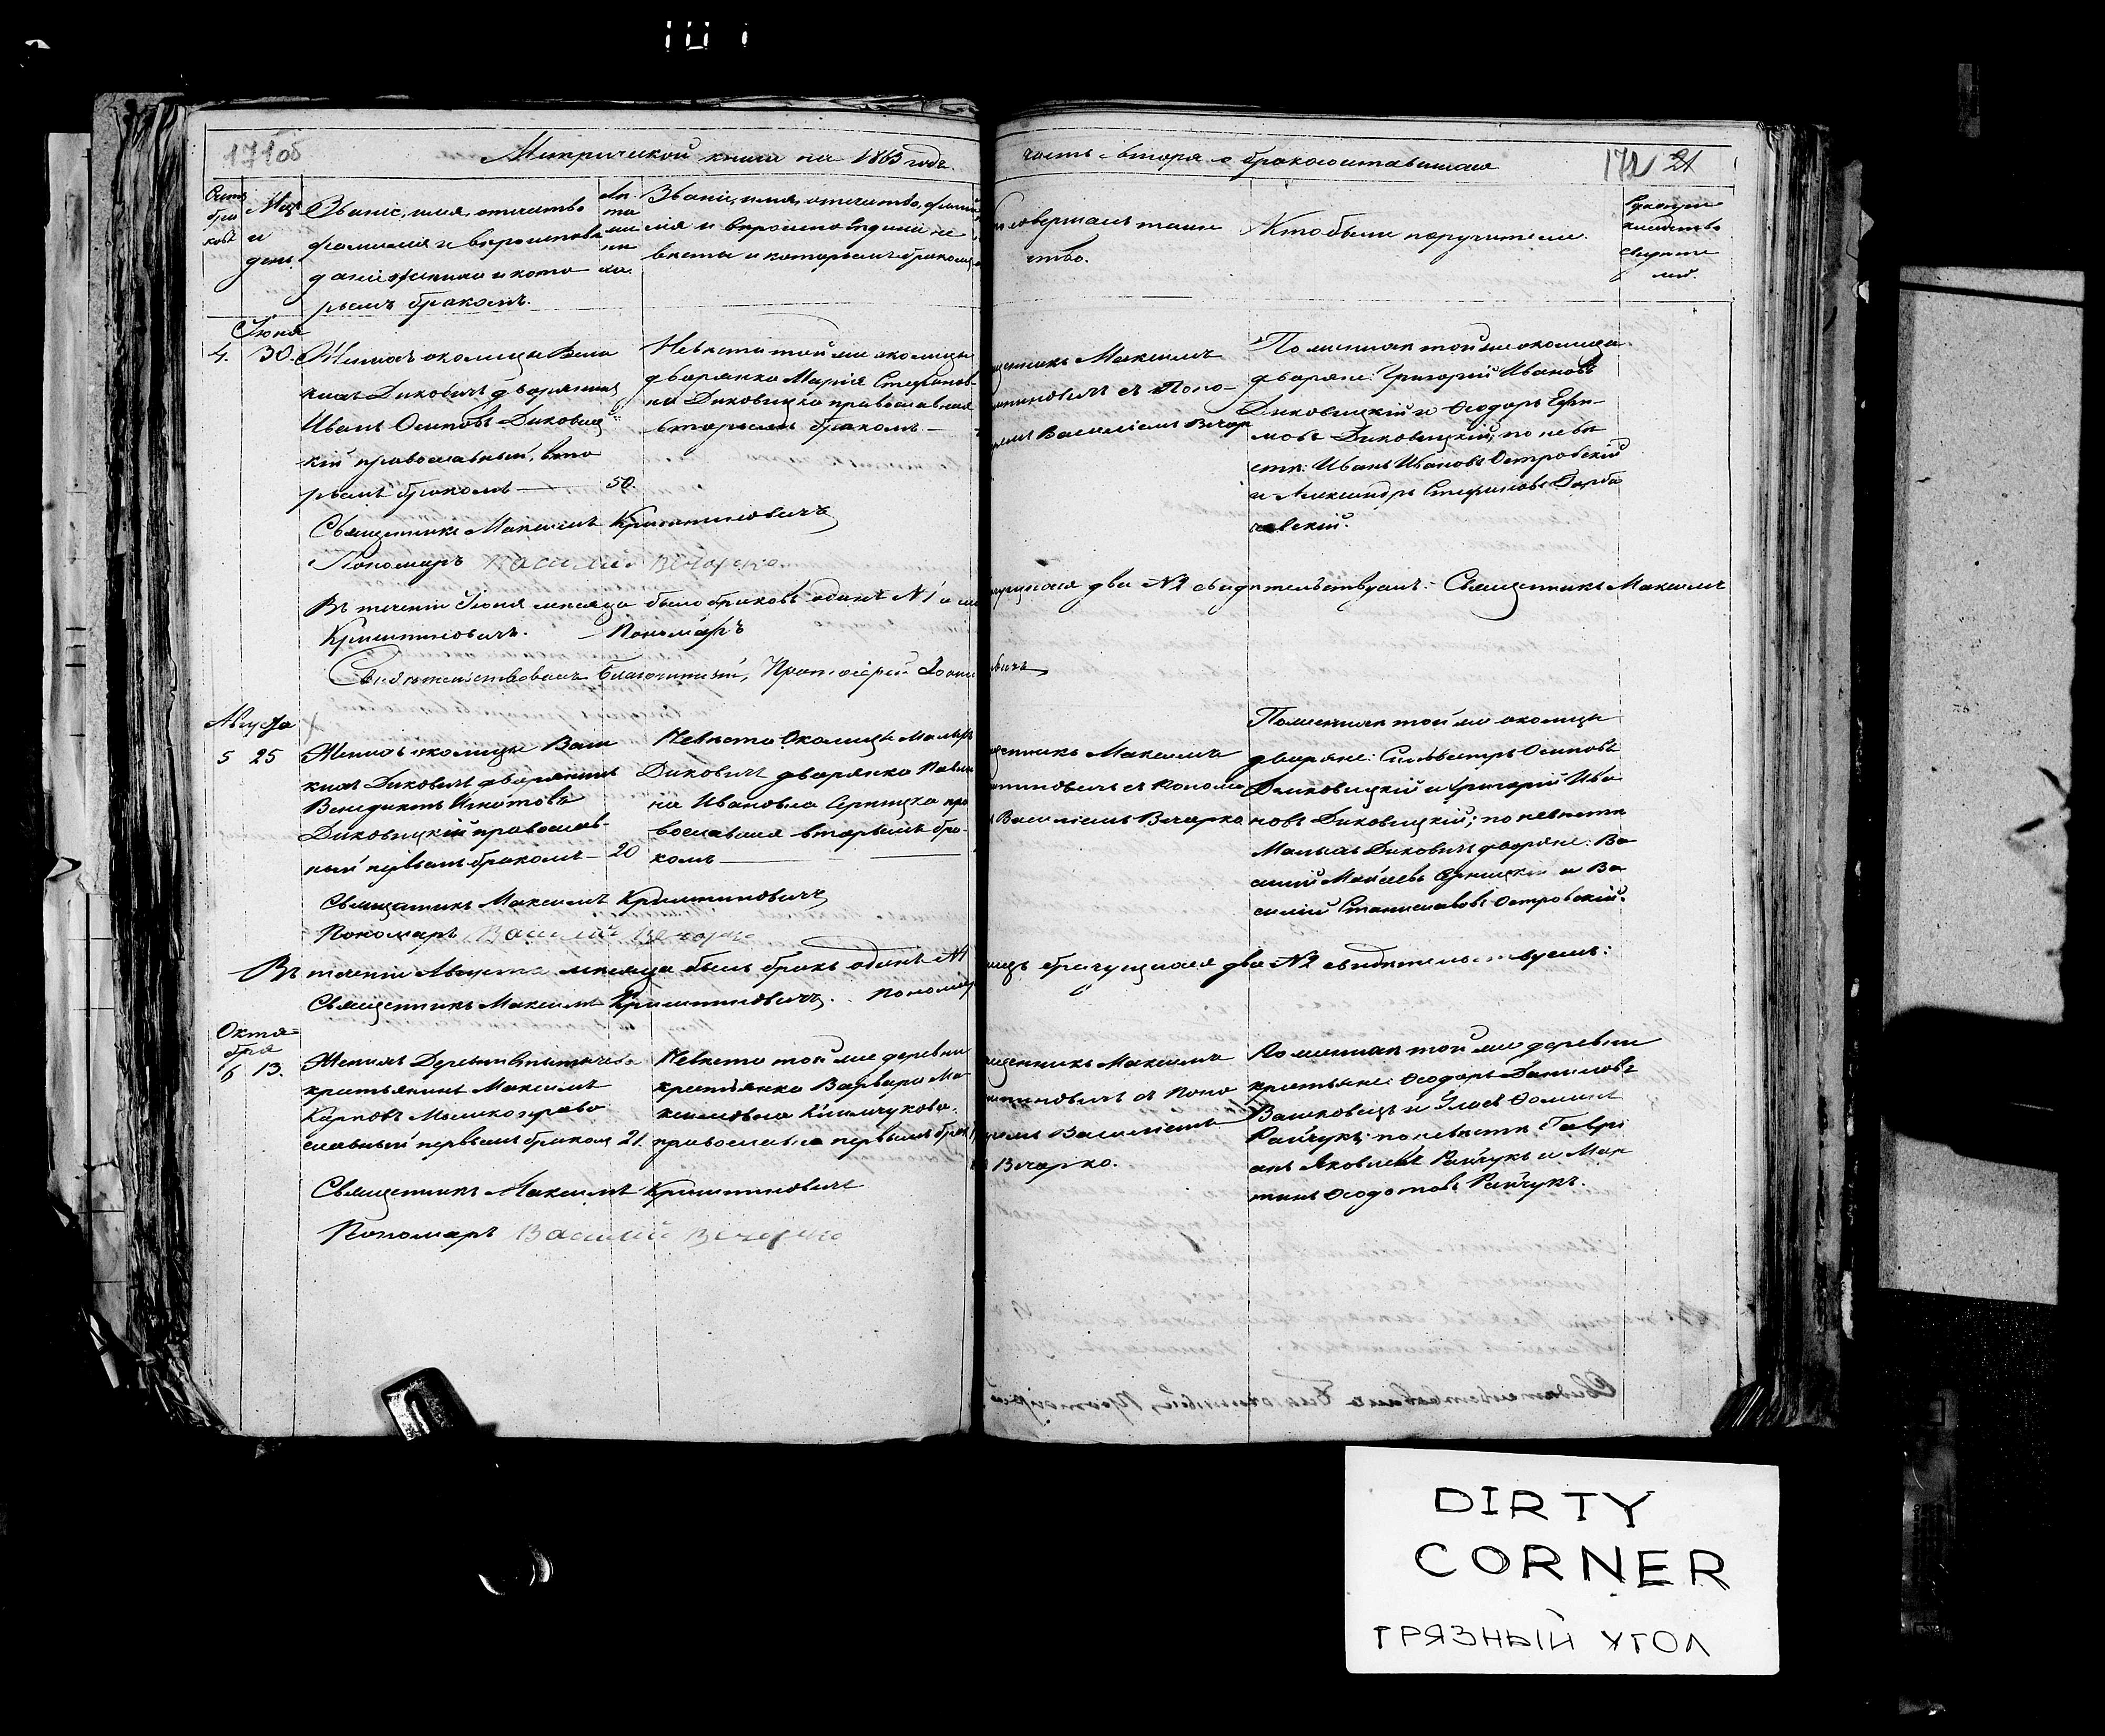 171об
Метрической книги на 1863 годъ.
часть вторая о бракосочетавшихся
172 21
Счетъ браковъ
Мцъ и день.
Званіе, имя, отчество
фамилія и вѣроисповѣ
даніе жениха и кото
рымъ бракомъ.
Званіе, имя, отчество, фами
лія и вѣроисповѣданіе не
вѣсты и которымъ бракомъ
совершалъ таин
ство.
Кто были поручители.
Іюня
4. 30. Женихъ околицы Вели
кихъ Диковичъ дворянинъ
Иванъ Осиповъ Диковиц
кій православный, вто
рымъ бракомъ — 50.
Невѣста той же околицы
дворянка Марія Стефанов-
на Диковицка православная
вторымъ бракомъ. —
щенникъ Максимъ
тиновичъ съ Поно-
Василіемъ Вечор
По женихѣ той же околицы
дворяне: Григорій Ивановъ
Диковицкій и Ѳеодоръ Ефи-
мовъ Диковицкій; по невѣ
стѣ: Иванъ Ивановъ Островскій
и Александръ Стефановъ
Священникъ Максимъ Криштиновичъ
Пономаръ Василий Вечорко
Въ теченіи Іюня мѣсяца было браковъ одинъ №1 и
брачущихся два №2 свидѣтельствуемъ. Священникъ Максимъ
Криштиновичъ. Пономаръ
Свидѣтельствовалъ Благочинный, Протоіерей
Августа
5 25 Женихъ околицы Вели
кихъ Диковичъ дворянинъ
Венедиктъ Игнатовъ
Диковицкій православ-
ный первымъ бракомъ — 20
Невѣста Околицы Малыхъ
Диковичъ дворянка Павли
на Ивановна Серницка пра
вославная вторымъ бра-
комъ —
щенникъ Максимъ
тиновичъ съ Поном
Василіемъ Вечорко
По женихѣ той же околицы
дворяне: Сильвестръ Осиповъ
Диковицкій и Григорій Ива
новъ Диковицкій; по невѣстѣ
Малыхъ Диковичъ дворяне: Ва
силий Серницкій и Ва
силій Станиславовъ Островскій.
Священникъ Максимъ Криштиновичъ
Пономаръ Василий Вечорко
Въ теченіи Августа мѣсяца былъ бракъ одинъ №1
брачущихся два №2 свидѣтельствуемъ:
Священникъ Максимъ Криштиновичъ. Пономаръ
Октя
бря
6 13. Женихъ Деревни
крестьянинъ Максимъ
Карповъ право
славный первымъ бракомъ 21.
Невѣста той же деревни
крестьянка Варвара Ма
ксимовна
православна первымъ брак
щенникъ Максимъ
тиновичъ съ Поно
Василіемъ
Вечорко.
По женихѣ той же деревни
крестьяне: Ѳеодоръ Даниловъ
Вашковецъ и
Райчукъ; по невѣстѣ Гаврі
илъ Яковлевъ Райчукъ и Мар
тинъ Ѳеодотовъ Райчукъ.
Священникъ Максимъ Криштиновичъ
Пономаръ Василий Вечорко
DIRTY
CORNER
ГРЯЗНЫЙ УГОЛ